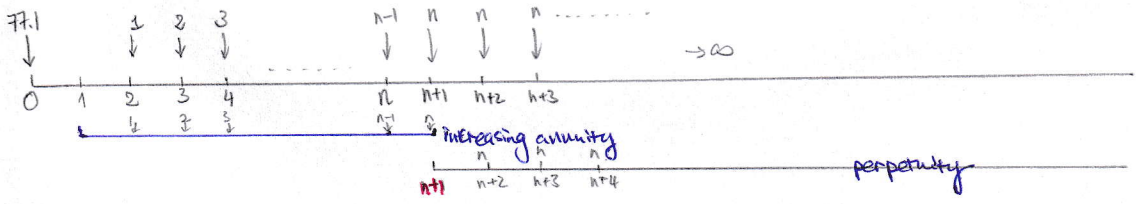 77.1 1 2 3 n-1 n n n ..........
........ →∞
0 1 2 3 4 n n+1 n+2 n+3
1 2 3 n-1 n
increasing annuity
n n n
n+1 n+2 n+3 n+4
perpetuity